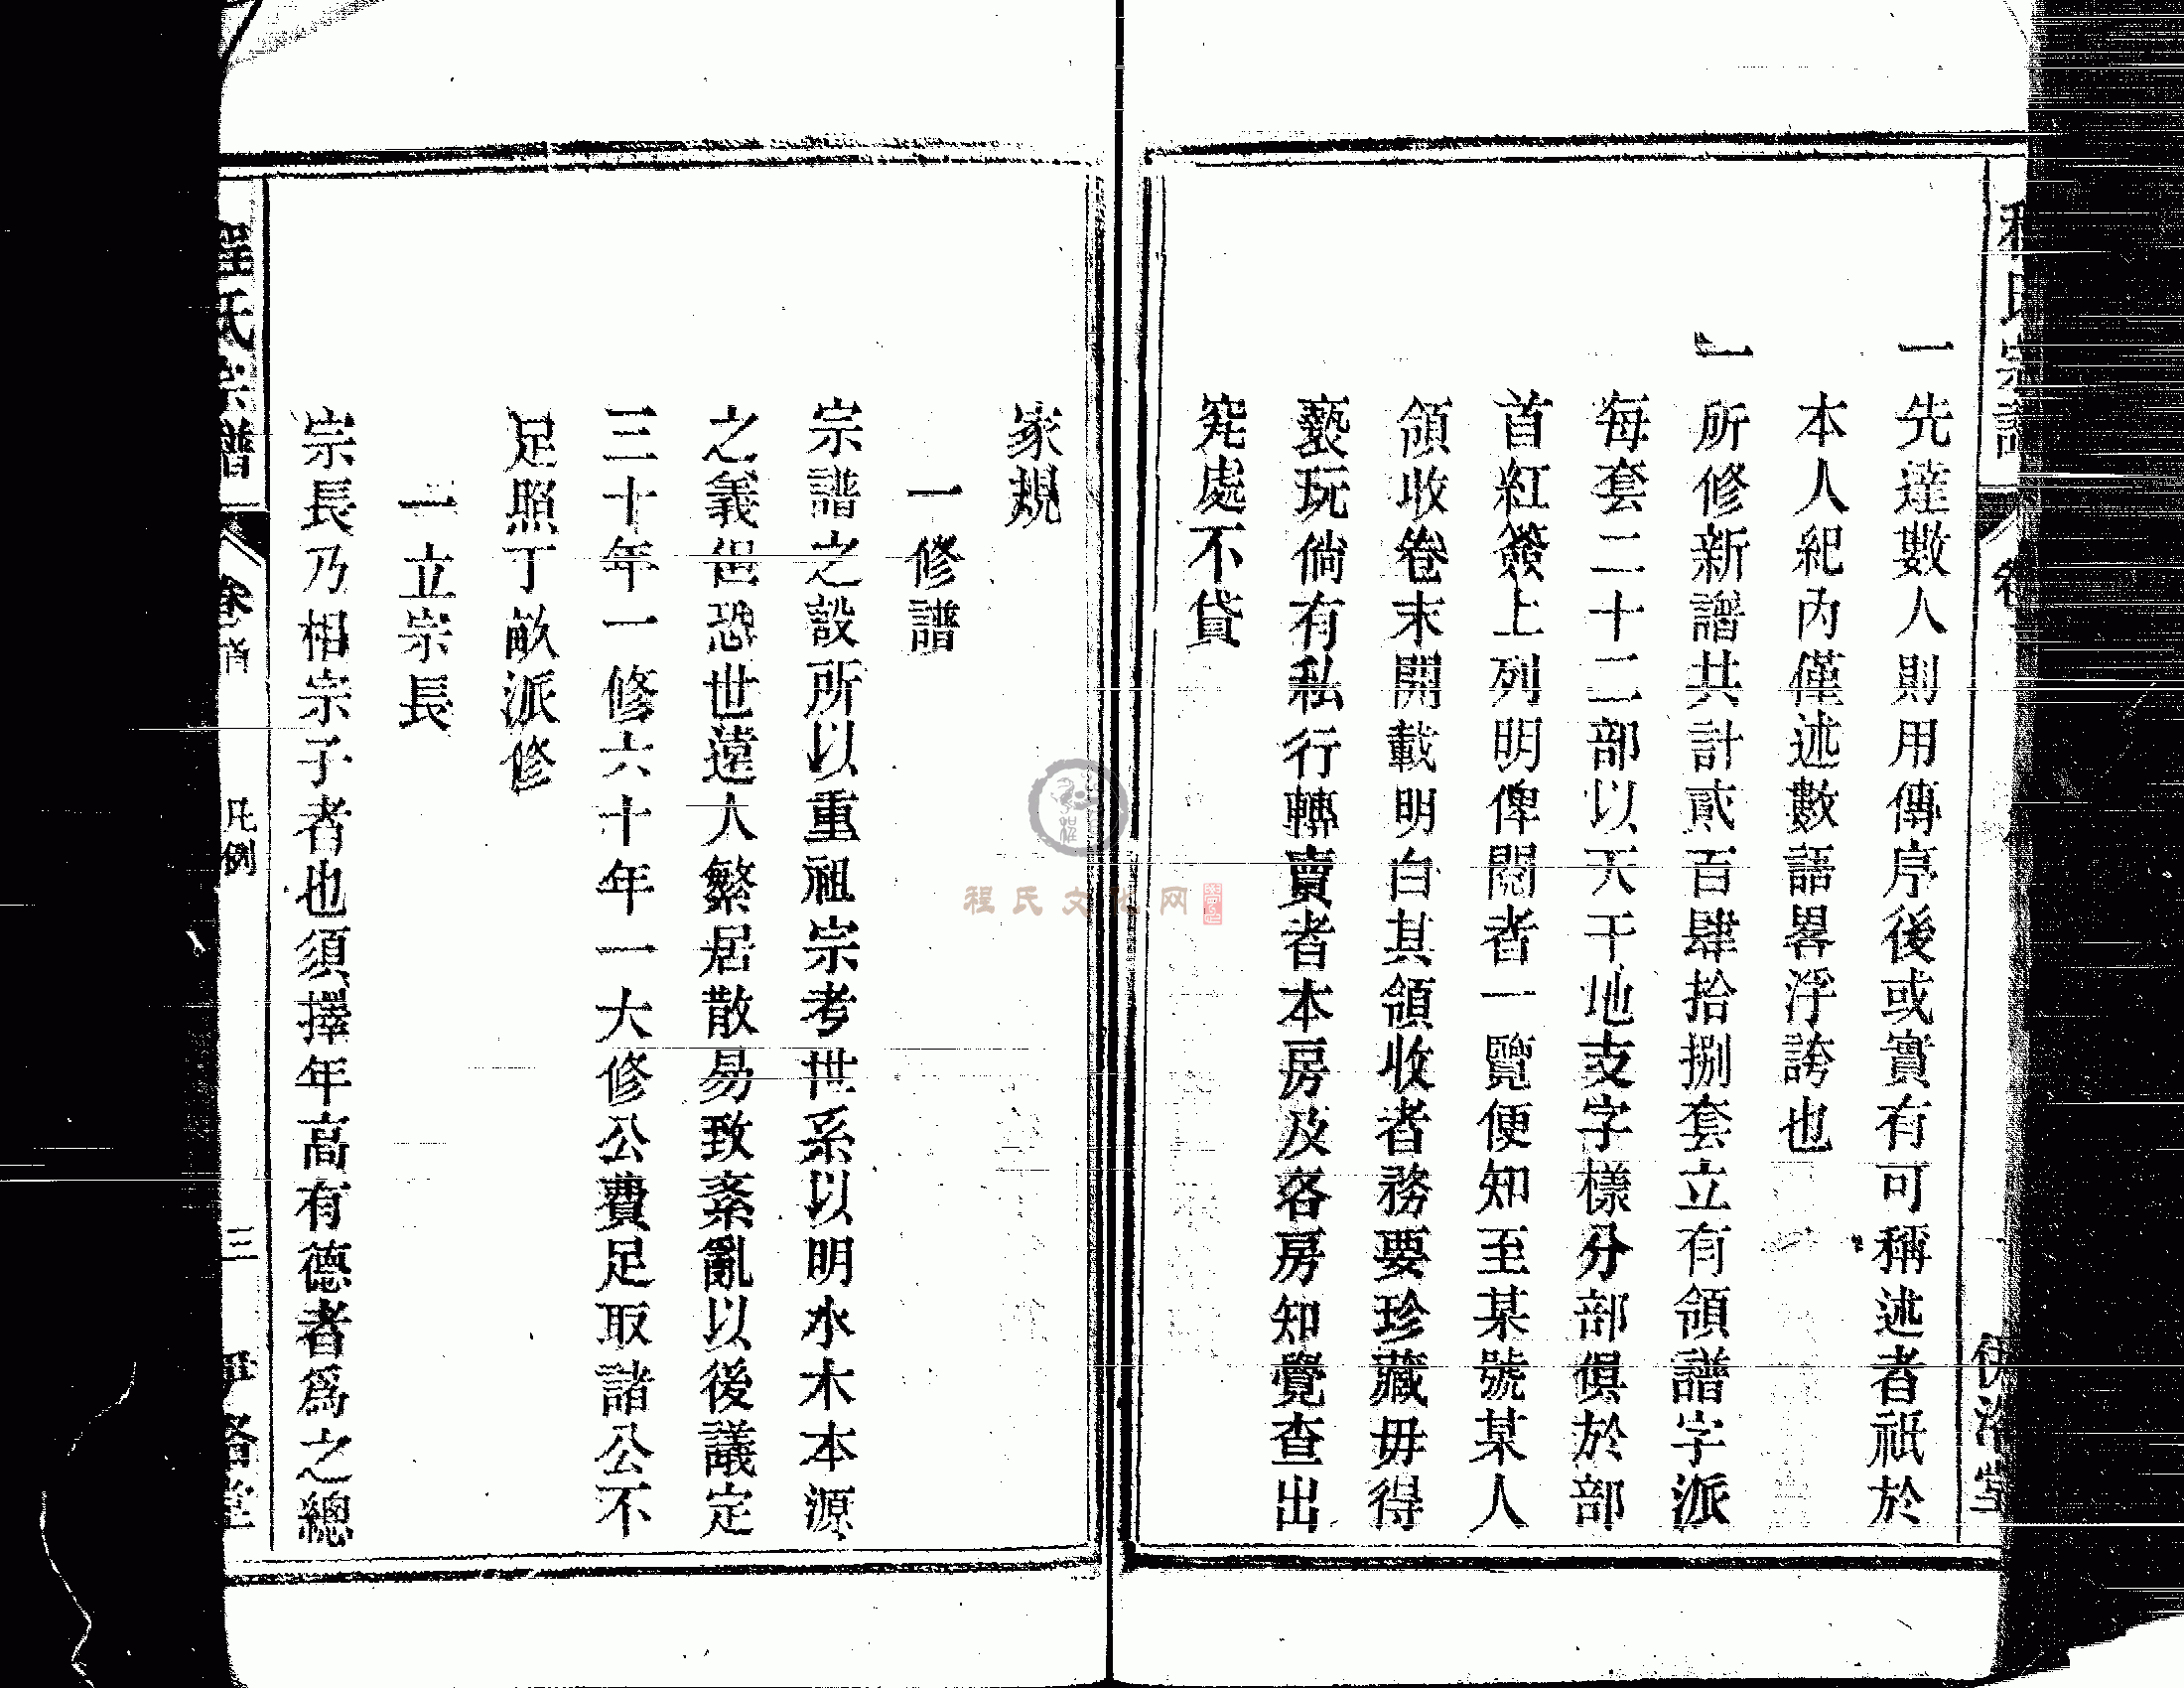 程氏宗譜
一先達數人則用傳序後或實有可稱述者祇於
本人紀內僅述數語畧浮誇也
一所修新譜共計貳百肆拾捌套立有領譜字派
每套二十二部以天干地支字樣分部俱於部
首紅簽上列明俾閱者一覽便知至某號某人
領收卷末開載明白其領收者務要珍藏毋得
褻玩倘有私行轉賣者本房及各房知覺查出
究處不貸
家規
一修譜
宗譜之設所以重祖宗考世系以明水木本源
之義但恐世遠人繁居散易致紊亂以後議定
三十年一修六十年一大修公費足取諸公不
足照丁畝派修
一立宗長
宗長乃相宗子者也須擇年高有德者爲之總
程氏宗譜
卷首
凡例
三
伊洛堂
程氏文化网